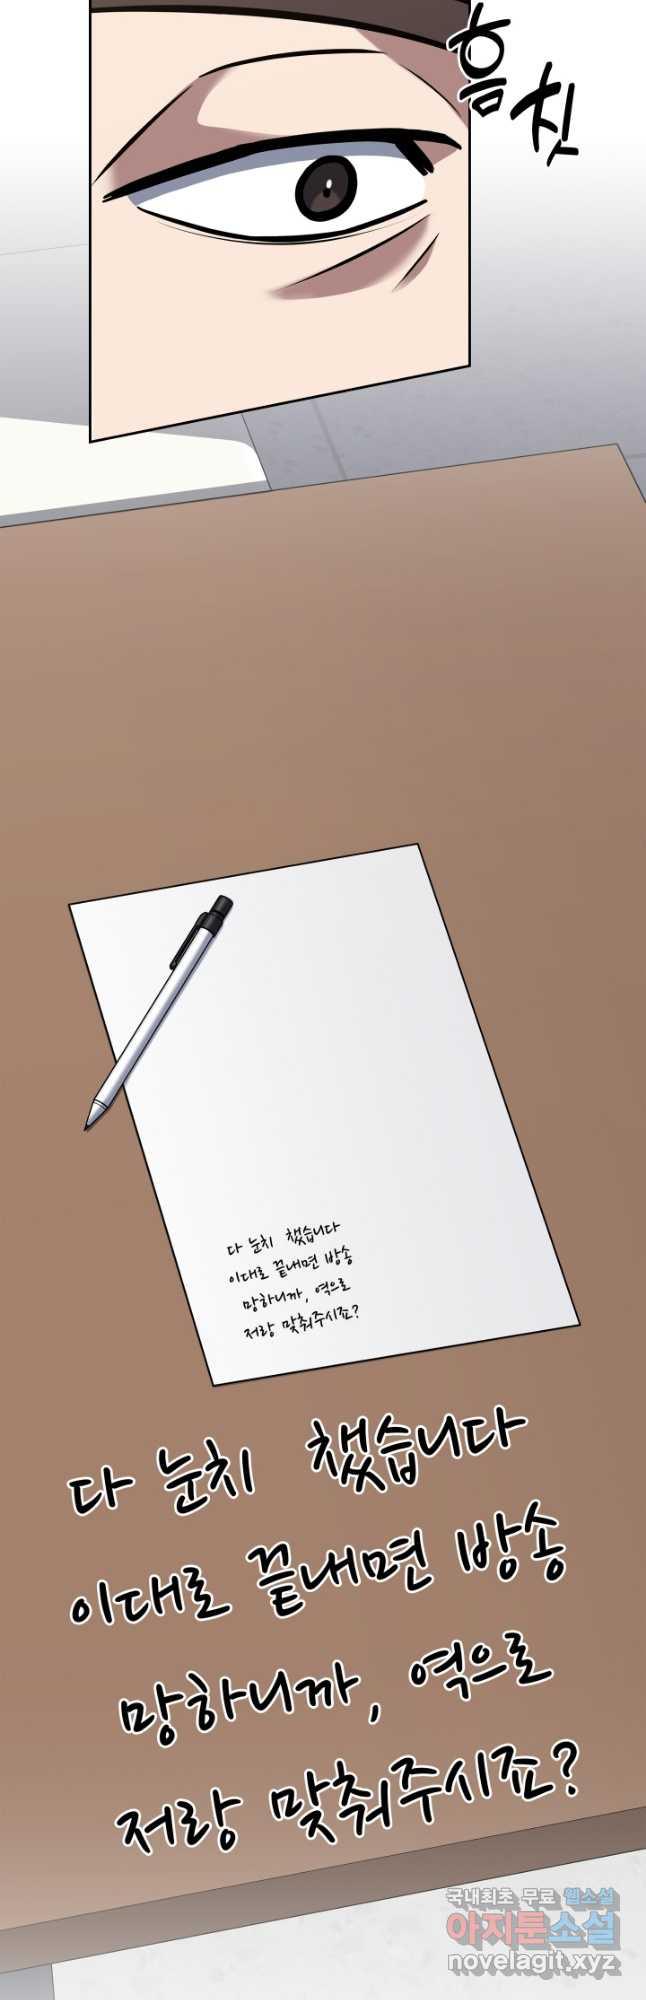 흠칫
다 눈치 챘습니다
이대로 끝내면 방송
망하니까, 역으로
저랑 맞춰주시죠?
다 눈치 챘습니다
이대로 끝내면 방송
망하니까, 역으로
저랑 맞춰주시죠?
국내최초 무료 웹소설
아지툰소설
novelagit.xyz